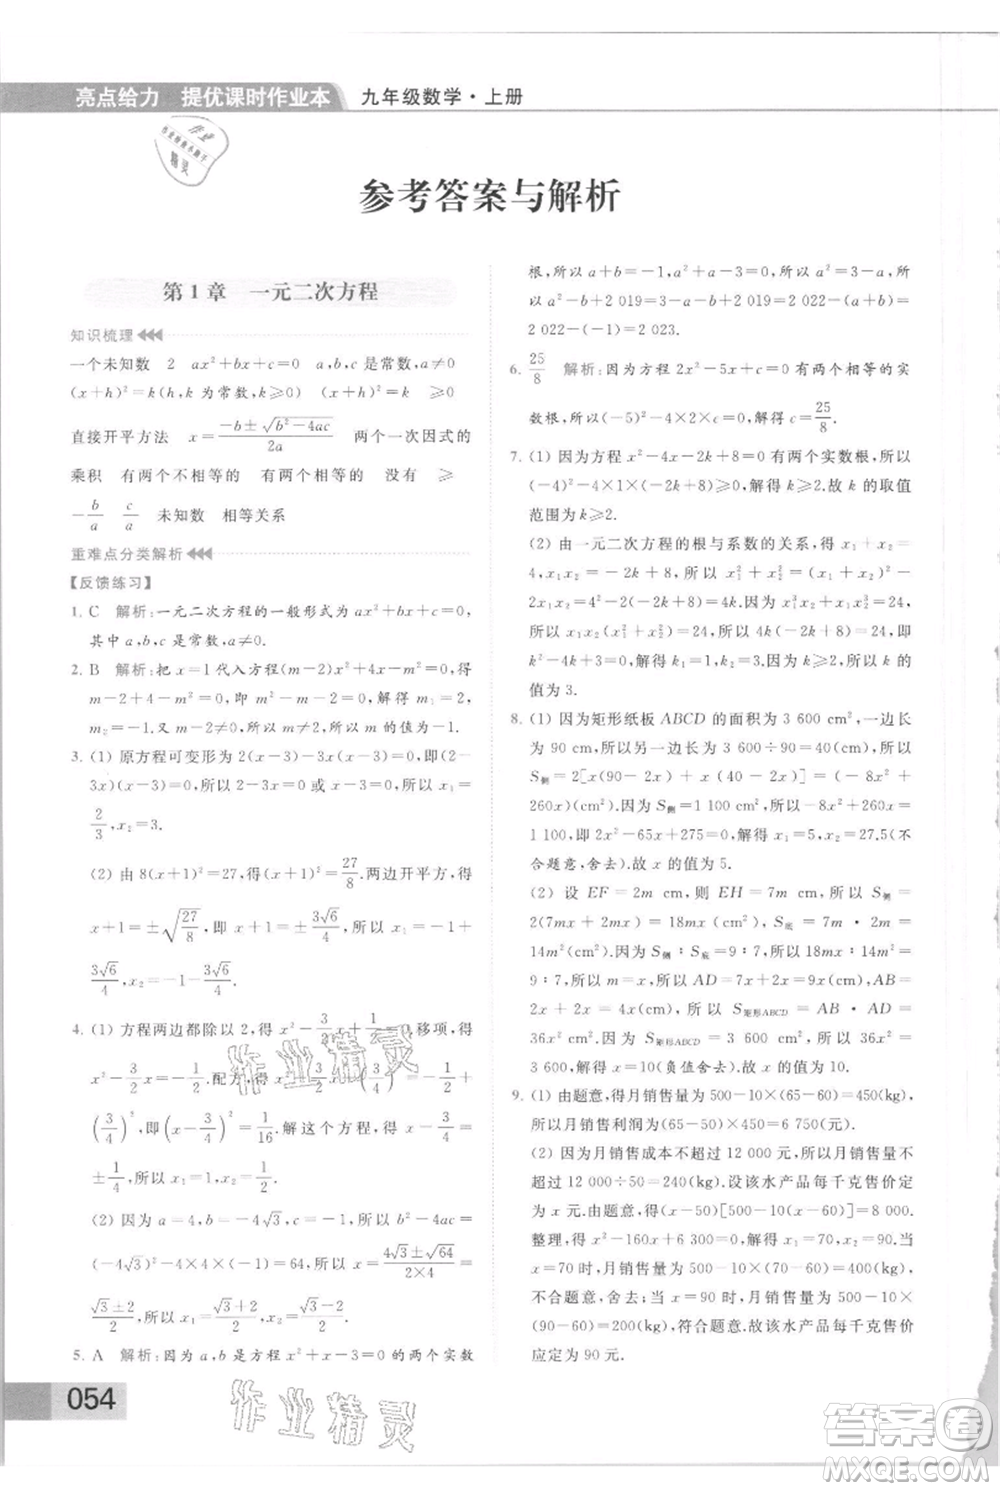 亮点给力 提优课时作业本 九年级数学·上册
作业
精灵
参考答案与解析
第1章 一元二次方程
知识梳理
一个未知数 2 ax²+bx+c=0 a,b,c 是常数,a≠0
(x+h)²=k(h,k 为常数,k≥0) (x+h)²=k ≥0
直接开平方法 x=(-b±√(b²-4ac))/(2a) 两个一次因式的
乘积 有两个不相等的 有两个相等的 没有 ≥
-b/a c/a 未知数 相等关系
重难点分类解析
【反馈练习】
1. C 解析:一元二次方程的一般形式为 ax²+bx+c=0,
其中 a,b,c 是常数,a≠0.
2. B 解析:把 x=1 代入方程(m-2)x²+4x-m²=0,得
m-2+4-m²=0,即 m²-m-2=0,解得 m₁=2,
m₂=-1.又 m-2≠0,所以 m≠2,所以 m 的值为-1.
3. (1) 原方程可变形为 2(x-3)-3x(x-3)=0,即(2-
3x)(x-3)=0,所以 2-3x=0 或 x-3=0,所以 x₁=
2/3,x₂=3.
(2) 由 8(x+1)²=27,得(x+1)²=27/8.两边开平方,得
x+1=±√(27/8),即 x+1=±3√6/4,所以 x₁=-1+
3√6/4,x₂=-1-3√6/4.
4. (1) 方程两边都除以 2,得 x²-3/2x+1/2=0.移项,得
x²-3/2x=-1/2.配方,得 x²-3/2x+(-3/4)²=-1/2+
(-3/4)²,即(x-3/4)²=1/16.解这个方程,得 x-3/4=
±1/4,所以 x₁=1,x₂=1/2.
(2) 因为 a=4,b=-4√3,c=-1,所以 b²-4ac=
(-4√3)²-4×4×(-1)=64,所以 x=(4√3±√64)/(2×4)=
(√3±2)/2,所以 x₁=(√3+2)/2,x₂=(√3-2)/2.
5. A 解析:因为 a,b 是方程 x²+x-3=0 的两个实数
根,所以 a+b=-1,a²+a-3=0,所以 a²=3-a,所
以 a²-b+2 019=3-a-b+2 019=2 022-(a+b)=
2 022-(-1)=2 023.
6. 25/8 解析:因为方程 2x²-5x+c=0 有两个相等的实
数根,所以(-5)²-4×2×c=0,解得 c=25/8.
7. (1) 因为方程 x²-4x-2k+8=0 有两个实数根,所以
(-4)²-4×1×(-2k+8)≥0,解得 k≥2.故 k 的取值
范围为 k≥2.
(2) 由一元二次方程的根与系数的关系,得 x₁+x₂=
4,x₁x₂=-2k+8,所以 x₁²+x₂²=(x₁+x₂)²-
2x₁x₂=16-2(-2k+8)=4k.因为 x₁³x₂+x₁x₂³=24,
所以 x₁x₂(x₁²+x₂²)=24,所以 4k(-2k+8)=24,即
k²-4k+3=0,解得 k₁=1,k₂=3.因为 k≥2,所以 k 的
值为 3.
8. (1) 因为矩形纸板 ABCD 的面积为 3 600 cm²,一边长
为 90 cm,所以另一边长为 3 600÷90=40(cm),所以
S侧=2[x(90-2x)+x(40-2x)]=(-8x²+
260x)(cm²).因为 S侧=1 100 cm²,所以-8x²+260x=
1 100,即 2x²-65x+275=0,解得 x₁=5,x₂=27.5(不
合题意,舍去).故 x 的值为 5.
(2) 设 EF=2m cm,则 EH=7m cm,所以 S侧=
2(7mx+2mx)=18mx(cm²),S底=7m·2m=
14m²(cm²).因为 S侧∶S底=9∶7,所以 18mx∶14m²=
9∶7,所以 m=x,所以 AD=7x+2x=9x(cm),AB=
2x+2x=4x(cm),所以 S矩形ABCD=AB·AD=
36x²(cm²).因为 S矩形ABCD=3 600 cm²,所以 36x²=
3 600,所以 x₁=10,x₂=-10(负值舍去).故 x 的值为 10.
9. (1) 由题意,得月销售量为 500-10×(65-60)=450(kg),
所以月销售利润为(65-50)×450=6 750(元).
(2) 因为月销售成本不超过 12 000 元,所以月销售量不超过
12 000÷50=240(kg).设该水产品每千克售价定
为 x 元.由题意,得(x-50)[500-10(x-60)]=8 000.
整理,得 x²-160x+6 300=0,解得 x₁=70,x₂=90.当
x=70 时,月销售量为 500-10×(70-60)=400(kg),
不合题意,舍去;当 x=90 时,月销售量为 500-10×
(90-60)=200(kg),符合题意.故该水产品每千克售价
应定为 90 元.
作业精灵
作业精灵
054
答案圈
MXQE.COM